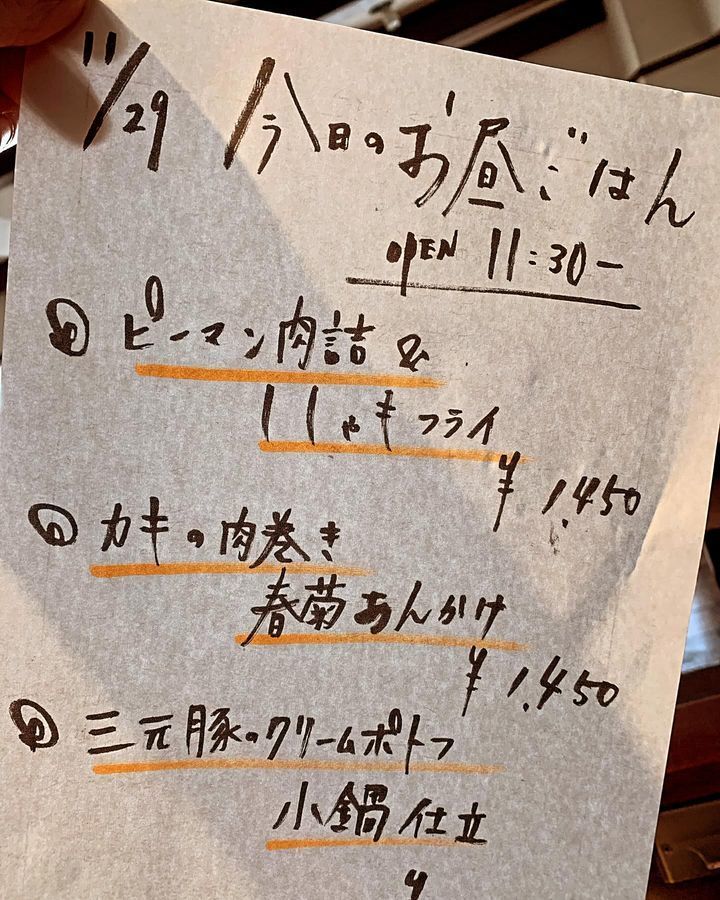 11/29 今日のお昼ごはん
OPEN 11:30ー
ピーマン肉詰 &
ししゃもフライ
¥1,450
カキの肉巻き
春菊あんかけ
¥1,450
三元豚のクリームポトフ
小鍋仕立